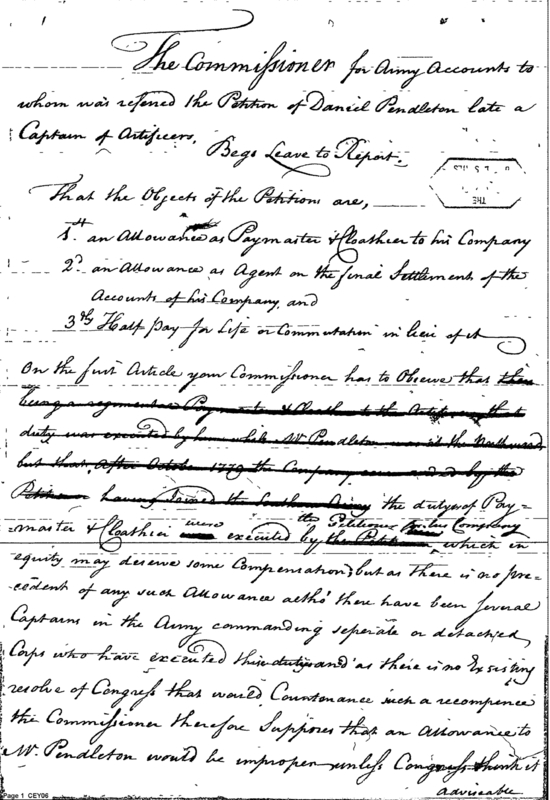 The Commissioner for Army Accounts to
whom was refered the Petition of Daniel Pendleton late a
Captain of Artificers.
Begs Leave to Report.
That the Objects of the Petition are,
1st. an Allowance as Paymaster & Cloathier to his Company
2d. an Allowance as Agent on the final Settlement of the
Accounts of his Company, and
3dly Half Pay for Life or Commutation in lieu of it
On the first Article your Commissioner has to Observe that there
being a regimental Paymaster & Cloathier to the Artificers that
duty was executed by him while Mr. Pendleton was at the Northward
but that, after October 1779 the Company commanded by the
Petitioner having joined the Southern Army the duties of Pay=
=master & Cloathier were executed by the Petitioner for his Company
the Petitioner, which in
equity may deserve some Compensation; but as there is no pre=
cedent of any such Allowance altho' there have been several
Captains in the Army commanding seperate or detached
Corps who have executed this duty and as there is no Exsisting
resolve of Congress that would Countenance such a recompence
the Commissioner therefore Supposes that an Allowance to
Mr. Pendleton would be improper unless Congress think it
adviseable
THE
Page 1 CEY06